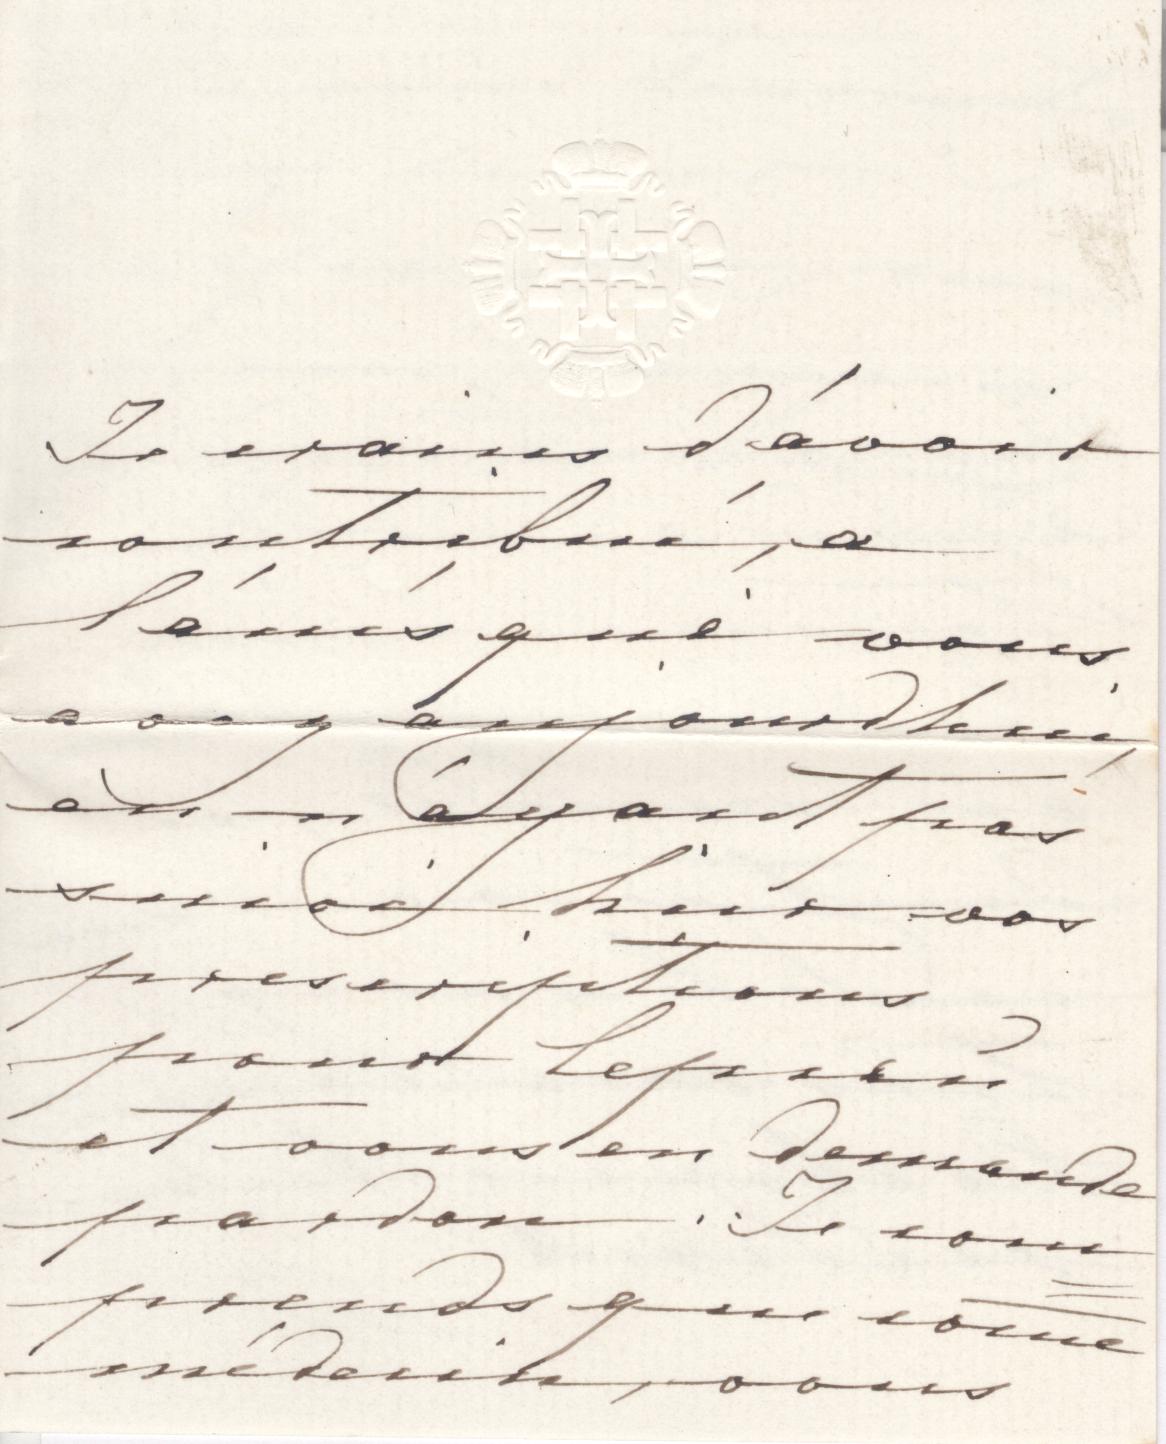 Je crains d'avoir
contribué, a
l'énis que vous
avez aujourdhui,
en n'ayant pas
suivi hier vos
prescriptions
pour
et vous en demande
pardon. Je com
prends que come
médecin, vous